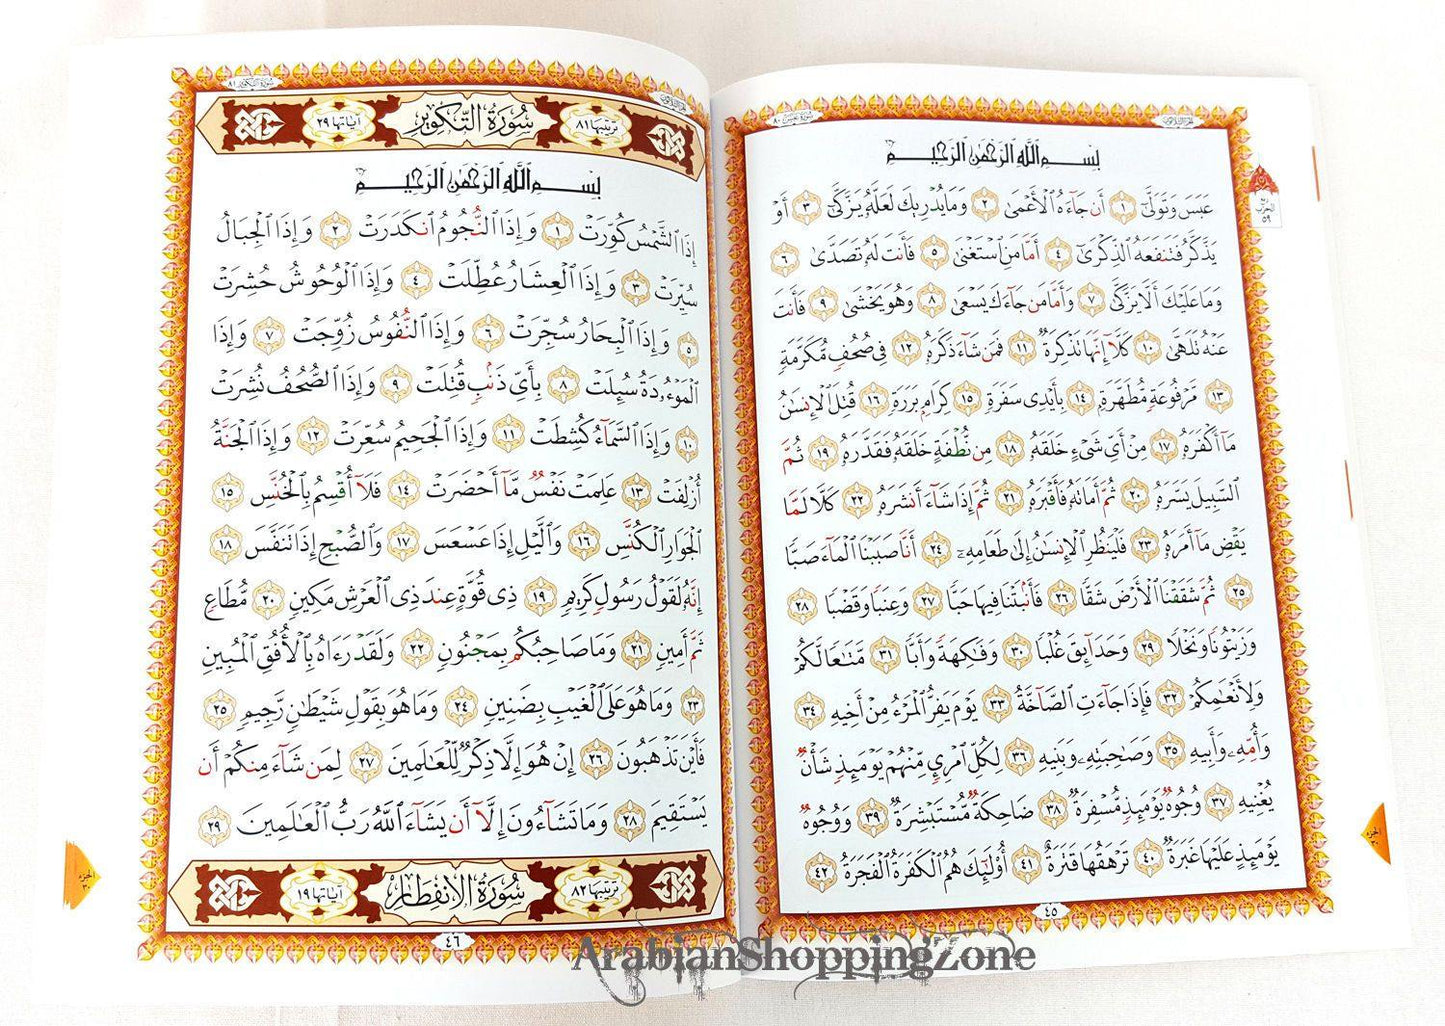 سورة عبس ٨٠
الجزء الثلاثون
بِسْمِ ٱللَّهِ ٱلرَّحْمَٰنِ ٱلرَّحِيمِ
عَبَسَ وَتَوَلَّىٰٓ ١ أَن جَآءَهُ ٱلْأَعْمَىٰ ٢ وَمَا يُدْرِيكَ لَعَلَّهُۥ يَزَّكَّىٰٓ ٣ أَوْ
يَذَّكَّرُ فَتَنفَعَهُ ٱلذِّكْرَىٰٓ ٤ أَمَّا مَنِ ٱسْتَغْنَىٰ ٥ فَأَنتَ لَهُۥ تَصَدَّىٰ ٦
وَمَا عَلَيْكَ أَلَّا يَزَّكَّىٰ ٧ وَأَمَّا مَن جَآءَكَ يَسْعَىٰ ٨ وَهُوَ يَخْشَىٰ ٩ فَأَنتَ
عَنْهُ تَلَهَّىٰ ١٠ كَلَّآ إِنَّهَا تَذْكِرَةٌ ١١ فَمَن شَآءَ ذَكَرَهُۥ ١٢ فِى صُحُفٍ مُّكَرَّمَةٍ
١٣ مَّرْفُوعَةٍ مُّطَهَّرَةٍۭ ١٤ بِأَيْدِى سَفَرَةٍ ١٥ كِرَامٍۭ بَرَرَةٍ ١٦ قُتِلَ ٱلْإِنسَٰنُ
مَآ أَكْفَرَهُۥ ١٧ مِنْ أَىِّ شَىْءٍ خَلَقَهُۥ ١٨ مِن نُّطْفَةٍ خَلَقَهُۥ فَقَدَّرَهُۥ ١٩ ثُمَّ
ٱلسَّبِيلَ يَسَّرَهُۥ ٢٠ ثُمَّ أَمَاتَهُۥ فَأَقْبَرَهُۥ ٢١ ثُمَّ إِذَا شَآءَ أَنشَرَهُۥ ٢٢ كَلَّا لَمَّا
يَقْضِ مَآ أَمَرَهُۥ ٢٣ فَلْيَنظُرِ ٱلْإِنسَٰنُ إِلَىٰ طَعَامِهِۦٓ ٢٤ أَنَّا صَبَبْنَا ٱلْمَآءَ صَبًّا
٢٥ ثُمَّ شَقَقْنَا ٱلْأَرْضَ شَقًّا ٢٦ فَأَنۢبَتْنَا فِيهَا حَبًّا ٢٧ وَعِنَبًا وَقَضْبًا ٢٨
وَزَيْتُونًا وَنَخْلًا ٢٩ وَحَدَآئِقَ غُلْبًا ٣٠ وَفَٰكِهَةً وَأَبًّا ٣١ مَّتَٰعًا لَّكُمْ
وَلِأَنْعَٰمِكُمْ ٣٢ فَإِذَا جَآءَتِ ٱلصَّآخَّةُ ٣٣ يَوْمَ يَفِرُّ ٱلْمَرْءُ مِنْ أَخِيهِ ٣٤
وَأُمِّهِۦ وَأَبِيهِ ٣٥ وَصَٰحِبَتِهِۦ وَبَنِيهِ ٣٦ لِكُلِّ ٱمْرِئٍ مِّنْهُمْ يَوْمَئِذٍ شَأْنٌ
يُغْنِيهِ ٣٧ وُجُوهٌ يَوْمَئِذٍ مُّسْفِرَةٌ ٣٨ ضَاحِكَةٌ مُّسْتَبْشِرَةٌ ٣٩ وَوُجُوهٌ
يَوْمَئِذٍ عَلَيْهَا غَبَرَةٌ ٤٠ تَرْهَقُهَا قَتَرَةٌ ٤١ أُو۟لَٰٓئِكَ هُمُ ٱلْكَفَرَةُ ٱلْفَجَرَةُ ٤٢
٤٥
ربع
الحزب
٥٩
الجزء
٣٠
سورة التكوير ٨١
الجزء الثلاثون
ترتيبها ٨١ سُورَةُ التَّكْوِير آياتها ٢٩
بِسْمِ ٱللَّهِ ٱلرَّحْمَٰنِ ٱلرَّحِيمِ
إِذَا ٱلشَّمْسُ كُوِّرَتْ ١ وَإِذَا ٱلنُّجُومُ ٱنكَدَرَتْ ٢ وَإِذَا ٱلْجِبَالُ
سُيِّرَتْ ٣ وَإِذَا ٱلْعِشَارُ عُطِّلَتْ ٤ وَإِذَا ٱلْوُحُوشُ حُشِرَتْ
٥ وَإِذَا ٱلْبِحَارُ سُجِّرَتْ ٦ وَإِذَا ٱلنُّفُوسُ زُوِّجَتْ ٧ وَإِذَا
ٱلْمَوْءُۥدَةُ سُئِلَتْ ٨ بِأَىِّ ذَنۢبٍ قُتِلَتْ ٩ وَإِذَا ٱلصُّحُفُ نُشِرَتْ
١٠ وَإِذَا ٱلسَّمَآءُ كُشِطَتْ ١١ وَإِذَا ٱلْجَحِيمُ سُعِّرَتْ ١٢ وَإِذَا ٱلْجَنَّةُ
أُزْلِفَتْ ١٣ عَلِمَتْ نَفْسٌ مَّآ أَحْضَرَتْ ١٤ فَلَآ أُقْسِمُ بِٱلْخُنَّسِ ١٥
ٱلْجَوَارِ ٱلْكُنَّسِ ١٦ وَٱلَّيْلِ إِذَا عَسْعَسَ ١٧ وَٱلصُّبْحِ إِذَا تَنَفَّسَ ١٨
إِنَّهُۥ لَقَوْلُ رَسُولٍ كَرِيمٍ ١٩ ذِى قُوَّةٍ عِندَ ذِى ٱلْعَرْشِ مَكِينٍ ٢٠ مُّطَاعٍ
ثَمَّ أَمِينٍ ٢١ وَمَا صَاحِبُكُم بِمَجْنُونٍ ٢٢ وَلَقَدْ رَءَاهُ بِٱلْأُفُقِ ٱلْمُبِينِ
٢٣ وَمَا هُوَ عَلَى ٱلْغَيْبِ بِضَنِينٍ ٢٤ وَمَا هُوَ بِقَوْلِ شَيْطَٰنٍ رَّجِيمٍ ٢٥
فَأَيْنَ تَذْهَبُونَ ٢٦ إِنْ هُوَ إِلَّا ذِكْرٌ لِّلْعَٰلَمِينَ ٢٧ لِمَن شَآءَ مِنكُمْ أَن
يَسْتَقِيمَ ٢٨ وَمَا تَشَآءُونَ إِلَّآ أَن يَشَآءَ ٱللَّهُ رَبُّ ٱلْعَٰلَمِينَ ٢٩
ترتيبها ٨٢ سُورَةُ الِانفِطَار آياتها ١٩
٤٦
الجزء
٣٠
ArabianShoppingZone